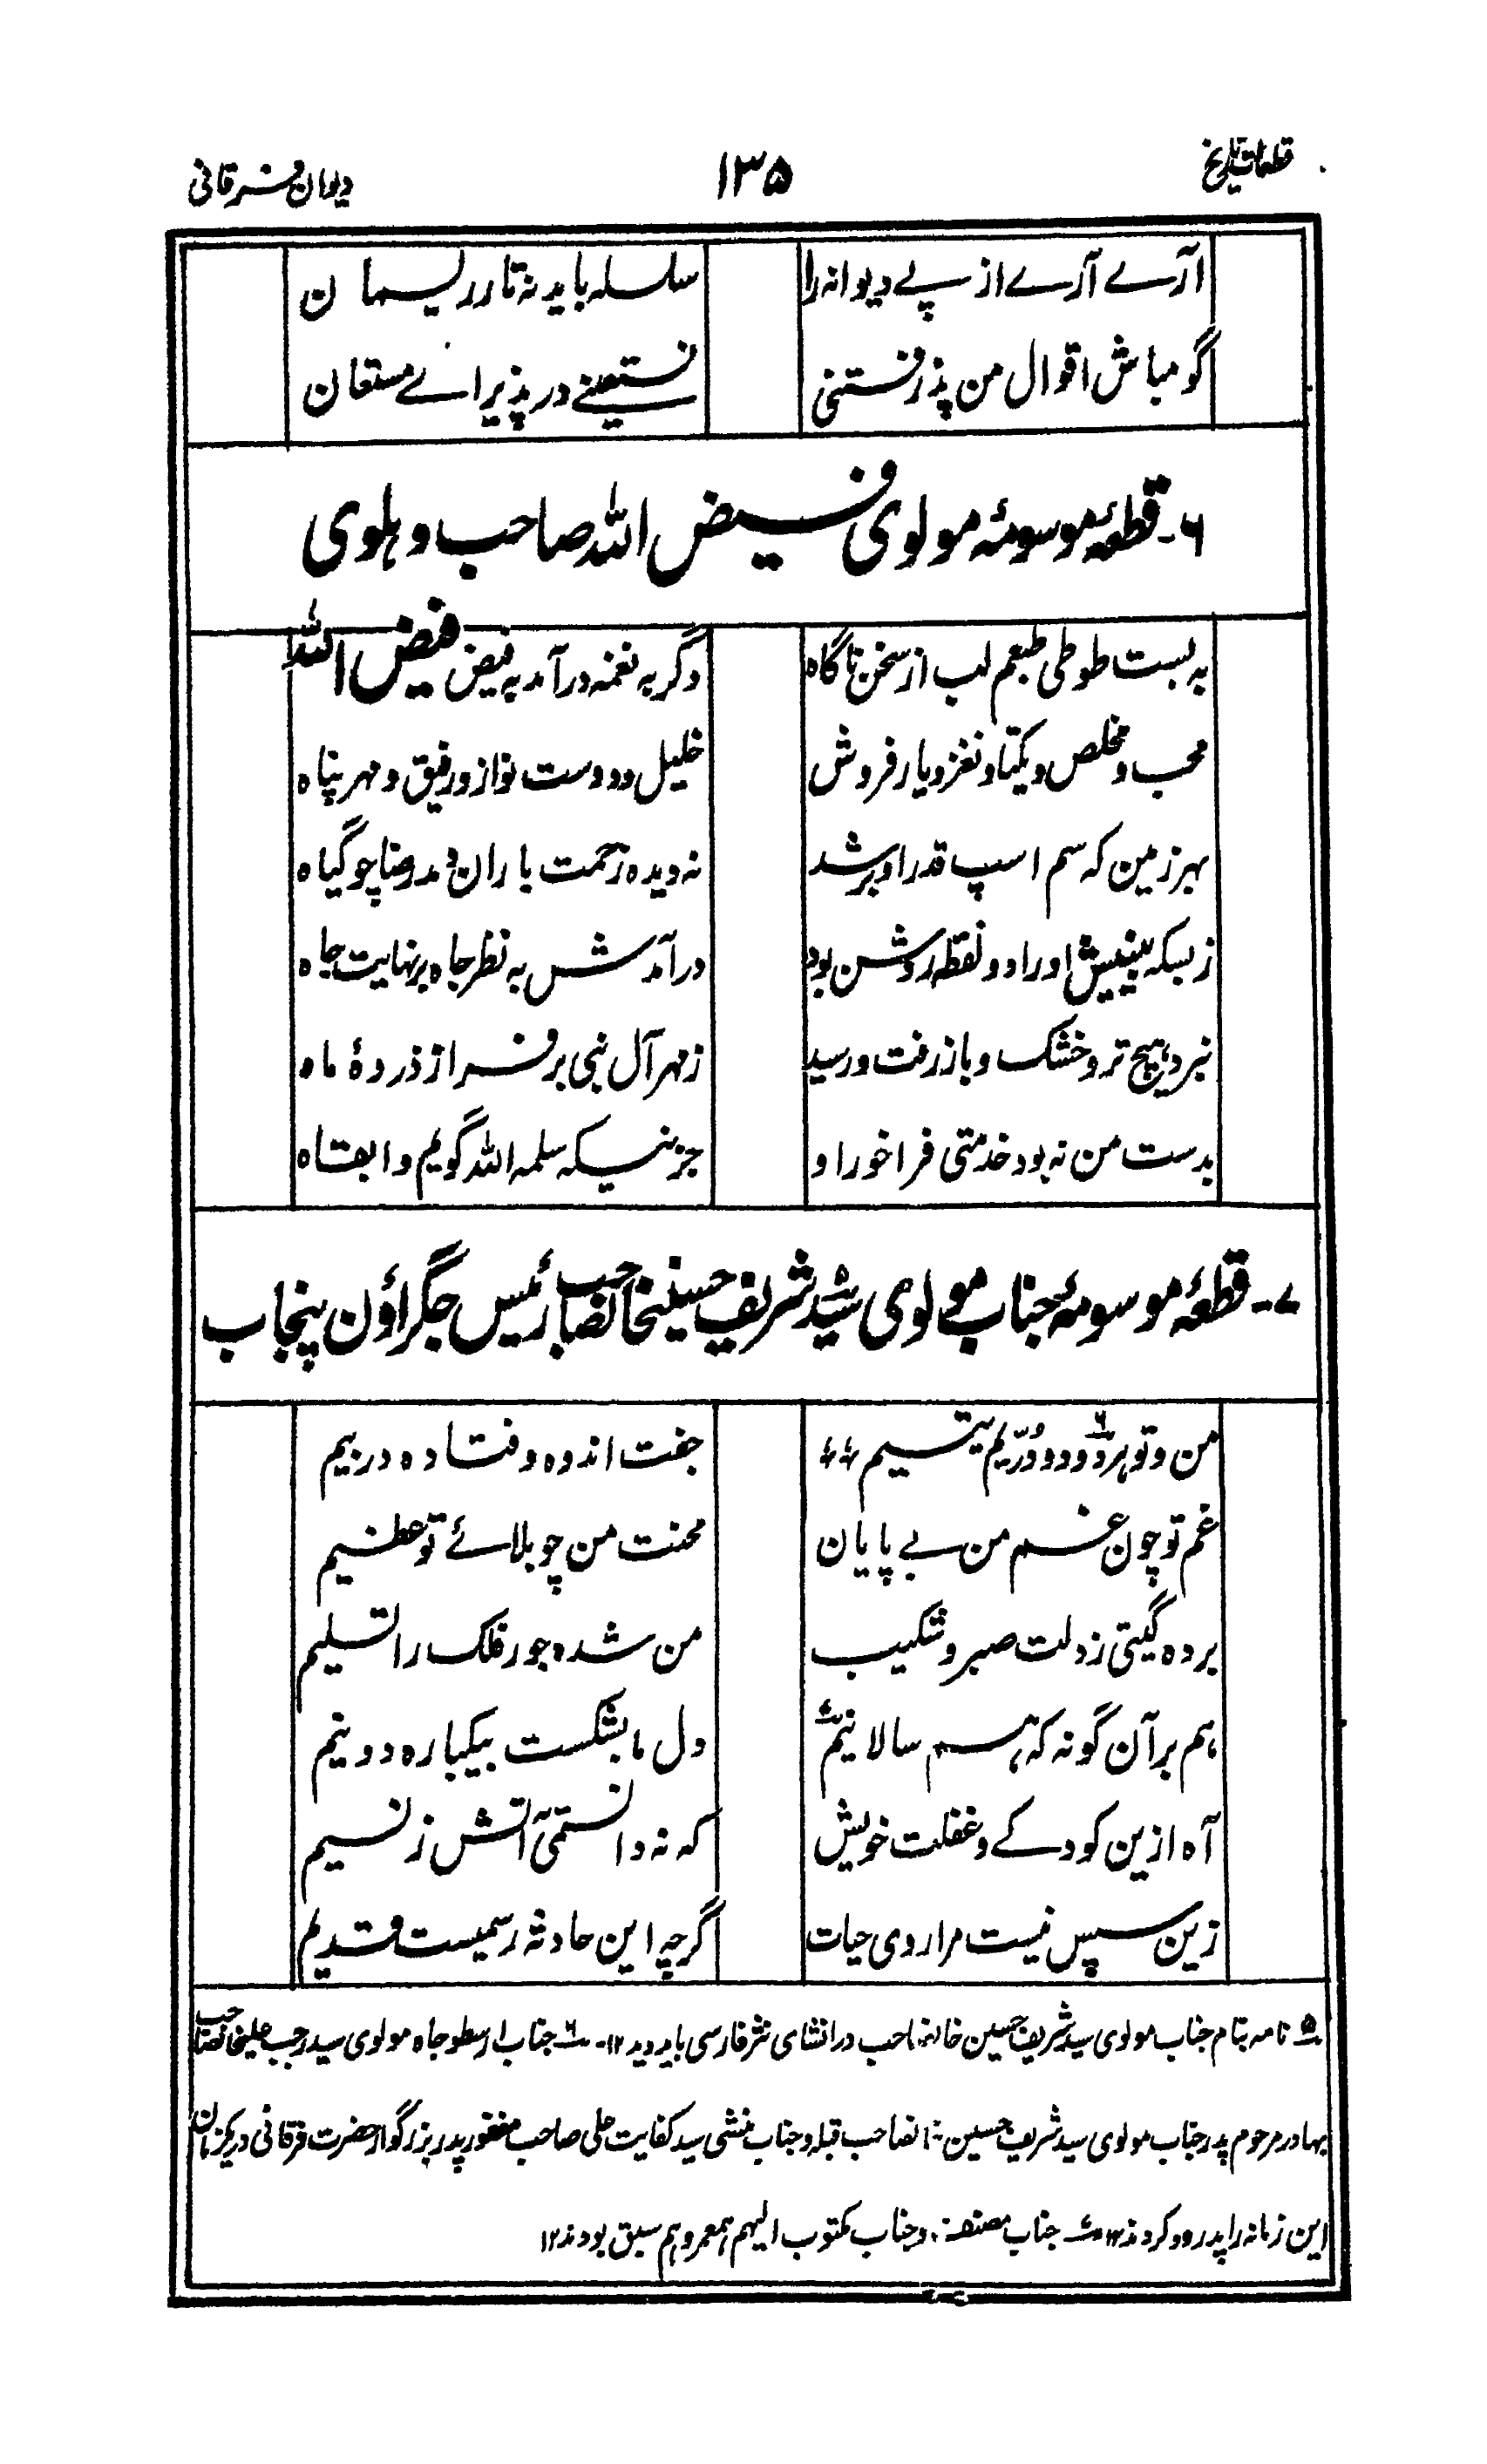 قطعات تاریخ ۱۳۵ دیوان فرقانی
آرے آرے از پے دیوانہ را سلسلہ باید نہ تار ریسمان
گو مباش اقوال من پذرفتنی نستعینے در پذیر اے مستعان
۶۔ قطعۂ موسومۂ مولوی فیض اللہ صاحب دہلوی
بہ بست طوطی طبعم لب از سخن ناگاہ دگر بہ نغمہ درآمد بہ فیض فیض اللہ
محب و مخلص و یکتا و نغز و یار فروش خلیل و دوست نواز و رفیق و مهر پناہ
بہر زمین کہ سم اسپ قدر او بر شد نہ دیدہ زحمت باران دمد رضا چو گیاہ
زبسکہ بینیش او را دو نقطہ روشن بود درآمدش بہ نظر جاہ بر نهایت جاہ
نبرد ہیچ تر و خشک و باز رفت و رسید ز مهر آل نبی بر فراز ذروۂ ماہ
بدست من نہ بود خدمتی فراخور او جز ینیکہ سلمہ اللہ گویم و ابقاہ
۷۔ قطعۂ موسومۂ جناب مولوی سید شریف حسینخانصاحب رئیس جگراؤن پنجاب
من و تو ہر دو دو درّیم یتیم جفت اندوہ و فتادہ در بیم
غم تو چون غم من بے پایان محنت من چو بلائے تو عظیم
بردہ گیتی ز دلت صبر و شکیب من شدہ جور فلک را تسلیم
ہم بر آن گونہ کہ ہم سالانیم دل ما بشکست بیکبارہ دو نیم
آہ ازین کودکے و غفلت خویش کہ نہ دانستمی آتش ز نسیم
زین سپس نیست مرا روی حیات اگرچہ این حادثہ رسمیست قدیم
۵ نامہ بنام جناب مولوی سید شریف حسین خانصاحب در انشای نثر فارسی باید دید ۱۲۔ ۶ جناب ارسطو جاہ مولوی سید رجب علیخانصاحب
بہادر مرحوم پدر جناب مولوی سید شریف حسین خانصاحب قبلہ و جناب منشی سید کفایت علی صاحب مغفور پدر بزرگوار حضرت فرقانی در یکزمان
این زمانہ را پدرود کردند ۱۲ جناب مصنف و جناب مکتوب الیہم ہمعمر و ہم سبق بودند ۱۲